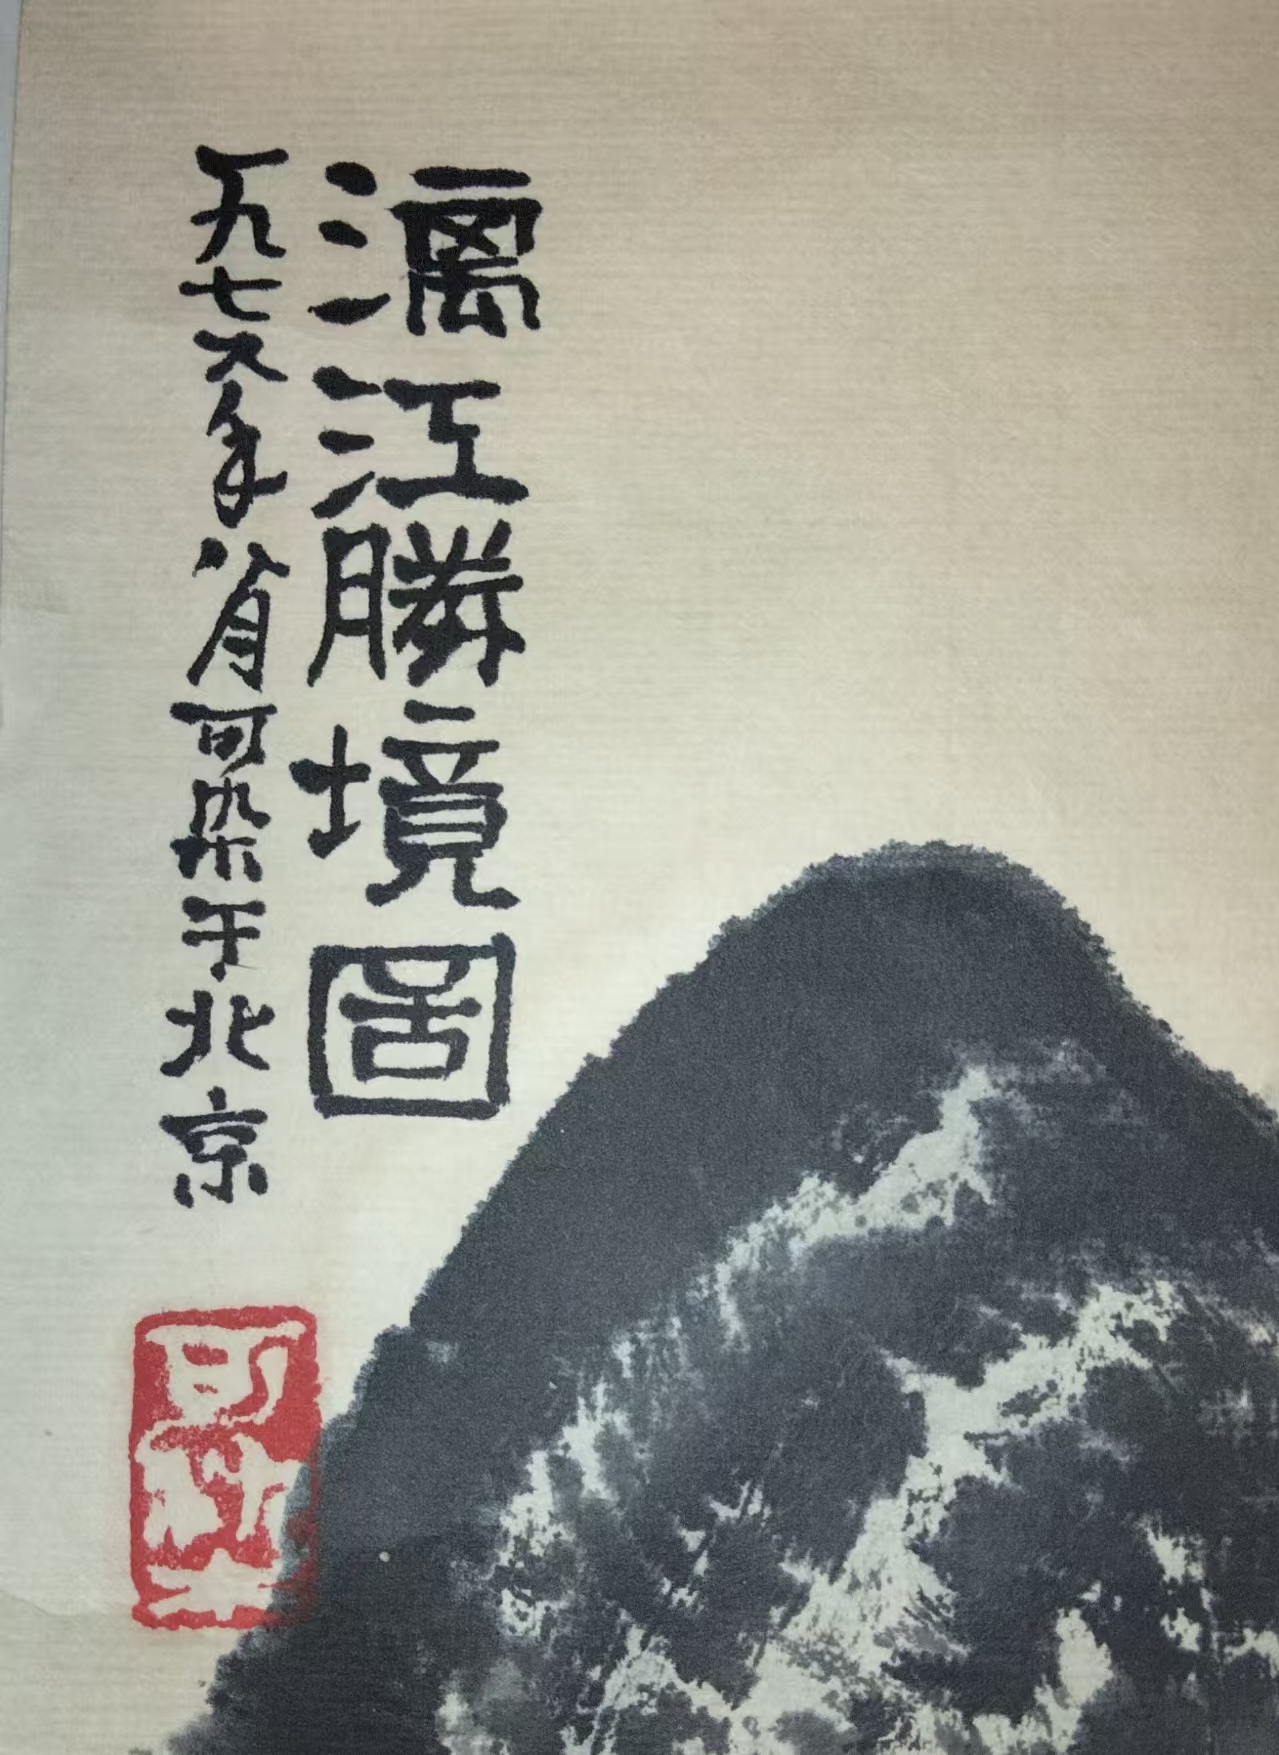 漓江勝境圖
一九七六年八月可染于北京
可染